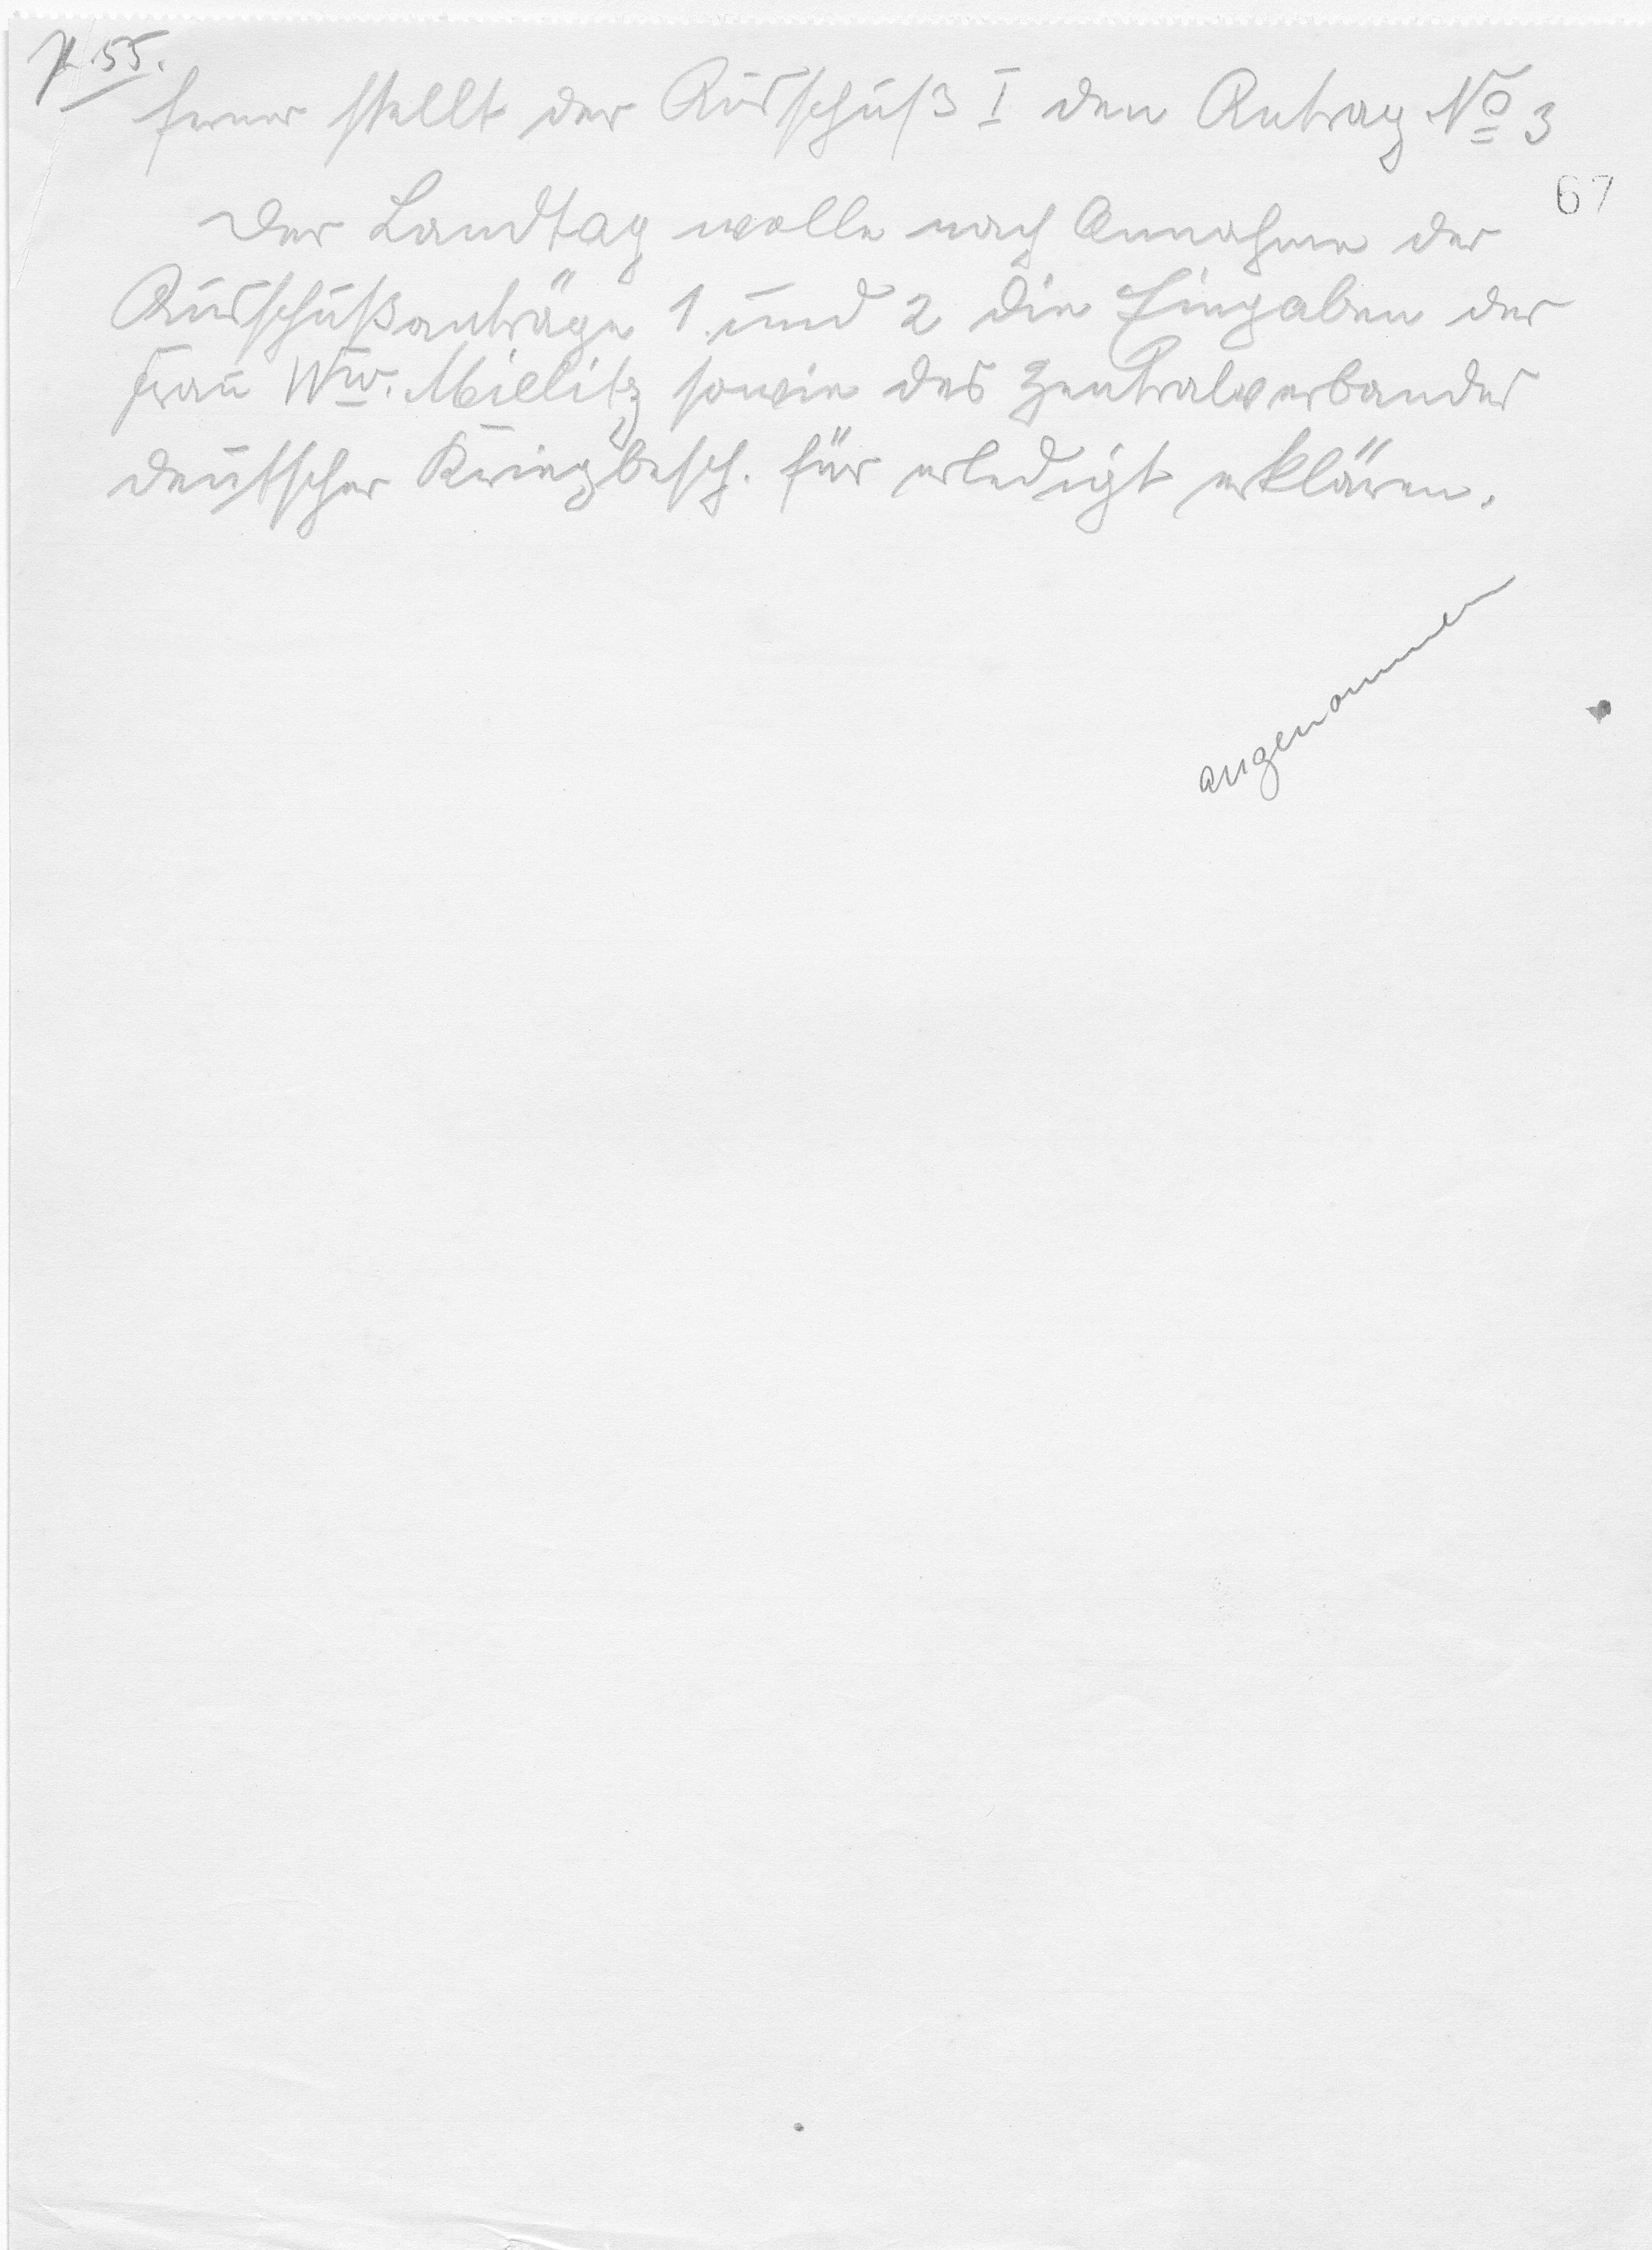 p. 55.
ferner stellt der Ausschuß I den Antrag No 3
67
Der Landtag wolle nach Annahme der
Ausschußanträge 1 und 2 die Eingaben der
Frau Ww. Millitz sowie des Zentralverbandes
deutscher Kriegbesch. für erledigt erklären.
angenommen